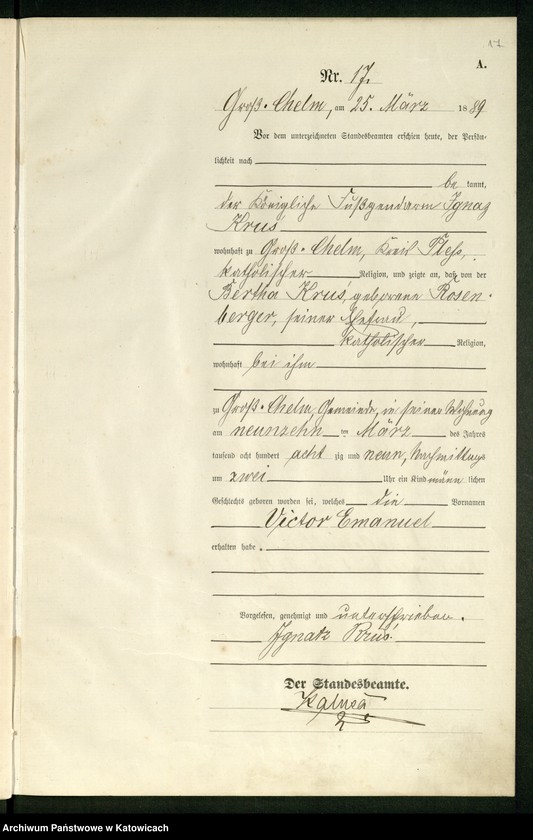 17
A.
Nr. 17.
Groß-Chelm, am 25. März 1889
Vor dem unterzeichneten Standesbeamten erschien heute, der Persön-
lichkeit nach
be kannt,
der Königliche Fußgendarm Ignaz
Krus
wohnhaft zu Groß-Chelm, Kreis Pless,
katholischer Religion, und zeigte an, daß von der
Bertha Krus, geborene Rosen-
berger, seiner Ehefrau,
katholischer Religion,
wohnhaft bei ihm
zu Groß-Chelm, Gemeinde, in seiner Wohnung
am neunzehn ten März des Jahres
tausend acht hundert acht zig und neun, Nachmittags
um zwei Uhr ein Kind männ lichen
Geschlechts geboren worden sei, welches die Vornamen
Victor Emanuel
erhalten habe.
Vorgelesen, genehmigt und unterschrieben.
Ignatz Krus
Der Standesbeamte.
Archiwum Państwowe w Katowicach